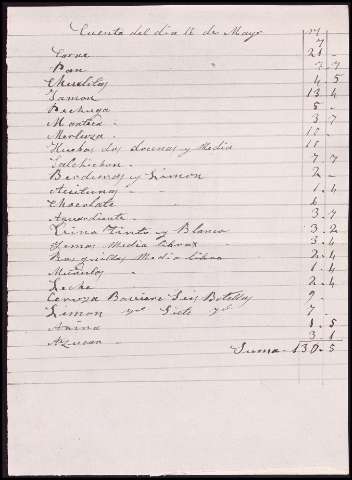 Cuenta del dia 15 de Mayo
Carne 21 -
Pan 3 7
Chuletas 4 5
Jamon 13 4
Pechuga 5 -
Manteca - 3 7
Merluza - 10 -
Huebos dos docenas y Media 10
Salchichon - 7 7
Berduras y Limon 2 -
Aceitunas - 1 . 4
Chocolate 6
Aguardiente - 3 . 7
Tinto y Blanco 3 . 2
Yemas Media libra - 3 . 4
Rosquillas Media libra 2 . 4
1 . 4
Leche 2 . 4
Cerveza Baviere Seis Botellas 9 -
Limon Siete 7 -
Arina 1 . 5
Azucar - 3 . 1
Suma - 130 . 5